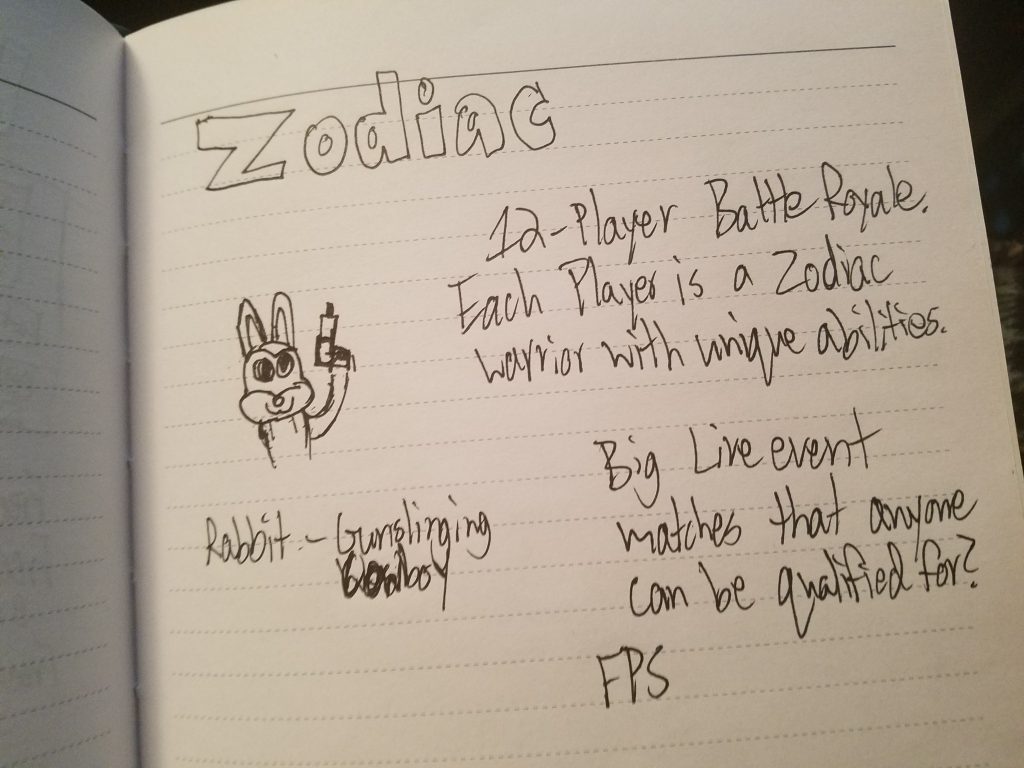 Zodiac
12-Player Battle Royale.
Each Player is a Zodiac
warrior with unique abilities.
Big Live event
matches that anyone
can be qualified for?
FPS
Rabbit:- Gunslinging
Cowboy